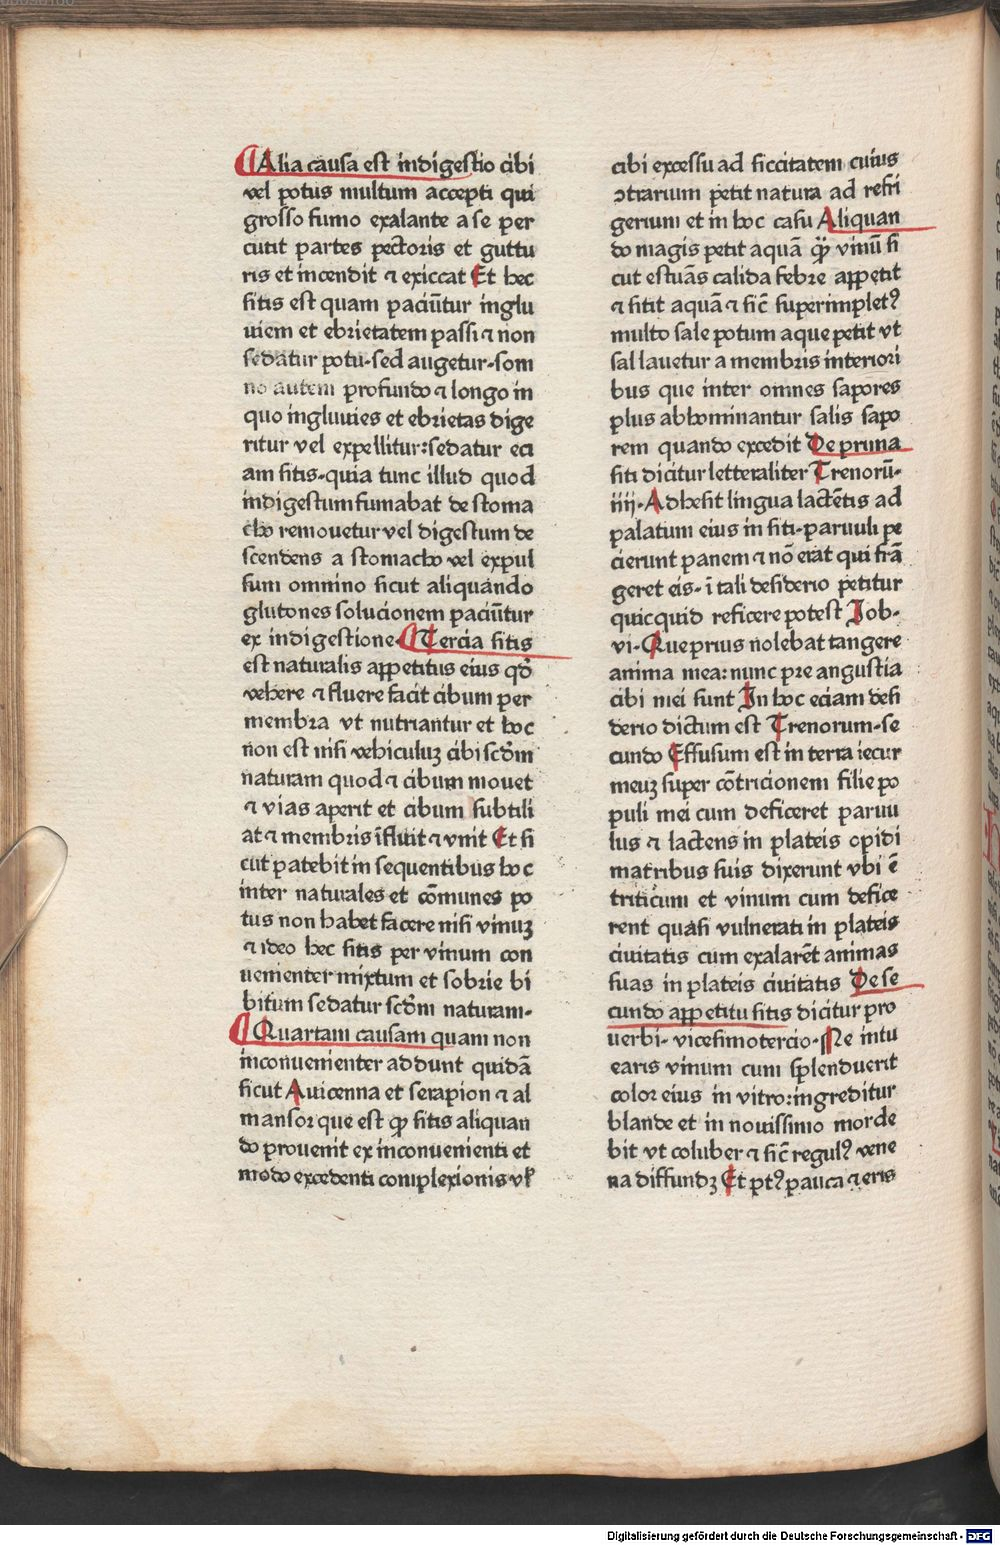 ¶Alia causa est indigestio cibi
vel potus multum accepti qui
grosso fumo exalante a se per
cutit partes pectoris et guttu
ris et incendit ⁊ exiccat Et hec
sitis est quam paciūtur inglu
uiem et ebrietatem passi ⁊ non
sedatur potu·sed augetur·som
no autem profundo ⁊ longo in
quo ingluuies et ebrietas dige
ritur vel expellitur:sedatur eci
am sitis·quia tunc illud quod
indigestum fumabat de stoma
cho remouetur vel digestum de
scendens a stomacho vel expul
sum omnino sicut aliquando
glutones solucionem paciūtur
ex indigestione·¶Tercia sitis
est naturalis appetitus eius qd̄
vehere ⁊ fluere facit cibum per
membra vt nutriantur et hoc
non est nisi vehiculuꝫ cibi scd̄m
naturam quod ⁊ cibum mouet
⁊ vias aperit et cibum subtili
at ⁊ membris īfluit ⁊ vnit Et si
cut patebit in sequentibus hoc
inter naturales et cōmunes po
tus non habet facere nisi vinuꝫ
⁊ ideo hec sitis per vinum con
uenienter mixtum et sobrie bi
bitum sedatur scd̄m naturam·
¶Quartam causam quam non
inconuenienter addunt quidā
sicut Auicenna et serapion ⁊ al
mansor que est ꝙ sitis aliquan
do prouenit ex inconuenienti et
modo excedenti complexionis vł
cibi excessu ad siccitatem cuius
ↄtrarium petit natura ad refri
gerium et in hoc casu Aliquan
do magis petit aquā ꝙ̄ vinū si
cut estuās calida febre appetit
⁊ sitit aquā ⁊ sic̄ superimplet⁹
multo sale potum aque petit vt
sal lauetur a membris interiori
bus que inter omnes sapores
plus abhominantur salis sapo
rem quando excedit De prima
siti dicitur letteraliter Trenorū·
iiij·Adhesit lingua lactētis ad
palatum eius in siti·paruuli pe
cierunt panem ⁊ nō erat qui frā
geret eis·ī tali desiderio petitur
quicquid reficere potest Job·
vi·Que prius nolebat tangere
anima mea:nunc pre angustia
cibi mei sunt In hoc eciam desi
derio dictum est Trenorum·se
cundo Effusum est in terra iecur
meuꝫ super cōtricionem filie po
puli mei cum deficeret paruu
lus ⁊ lactens in plateis opidi
matribus suis dixerunt vbi ē
triticum et vinum cum defice
rent quasi vulnerati in plateis
ciuitatis cum exalarēt animas
suas in plateis ciuitatis De se
cundo appetitu sitis dicitur pro
uerbi·vicesimotercio·Ne intu
earis vinum cum splenduerit
color eius in vitro:ingreditur
blande et in nouissimo morde
bit vt coluber ⁊ sic̄ regul⁹ vene
na diffundꝫ Et pt⁹ pauca ⁊ eris
Digitalisierung gefördert durch die Deutsche Forschungsgemeinschaft - DFG